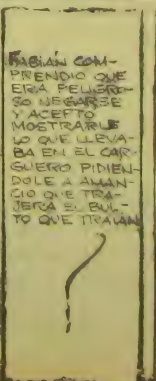 FABIÁN COM-
PRENDIO QUE
ERA PELIGRO-
SO NEGARSE
Y ACEPTO
MOSTRARLE
LO QUE LLEVA-
BA EN EL CAR-
GUERO PIDIEN-
DOLE A AMAN-
CIO QUE TRA-
JERA EL BUL-
TO QUE TRAIAN